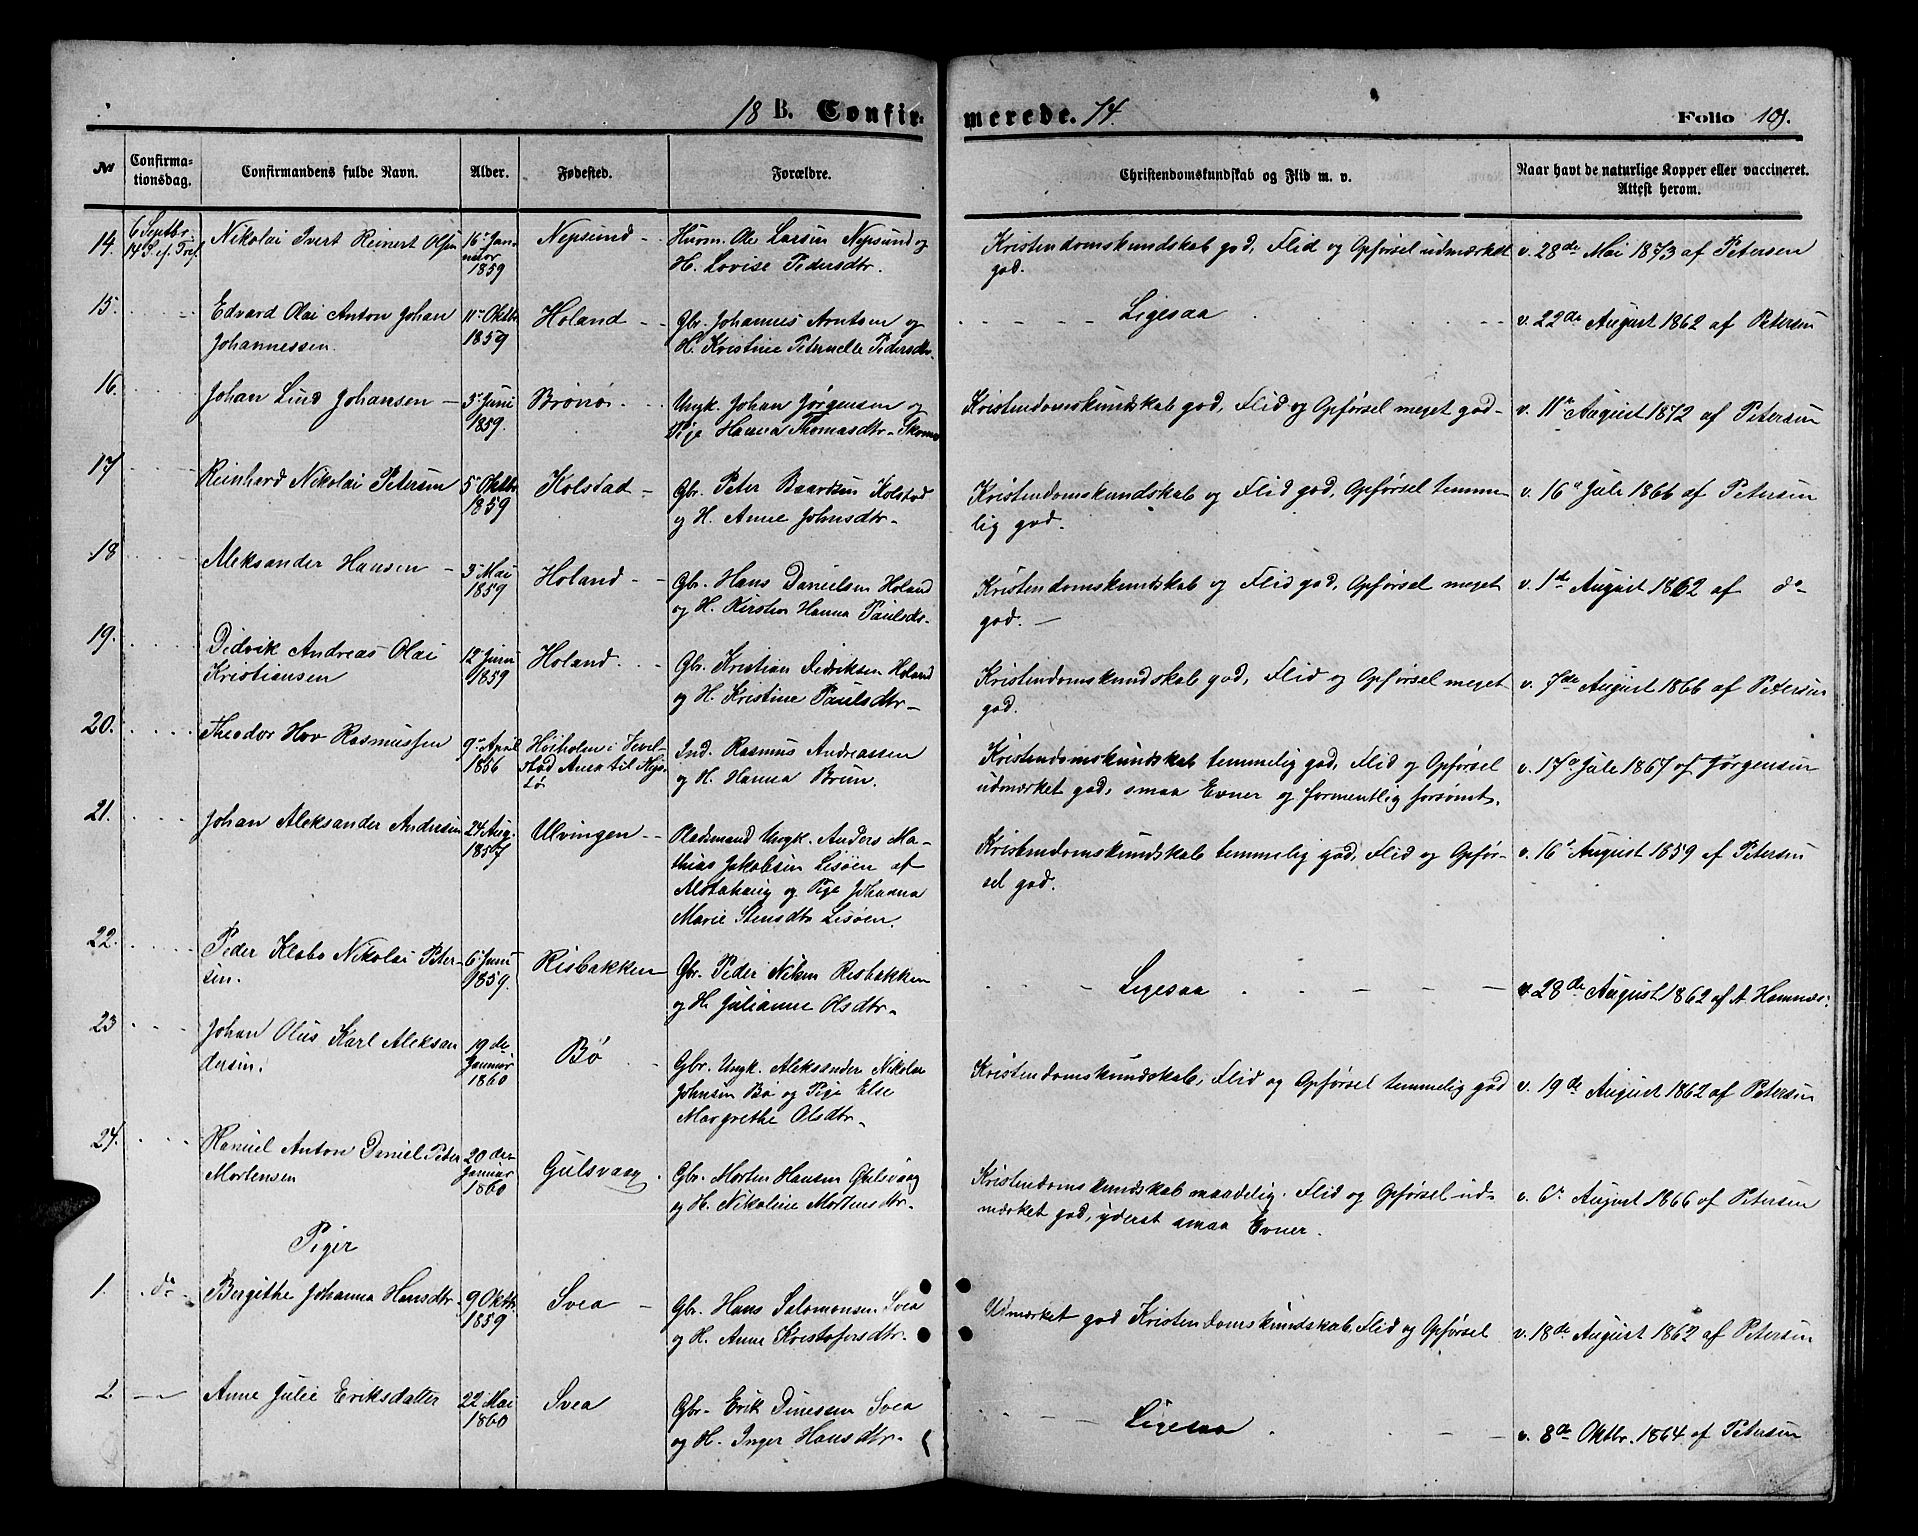 18 B. Confir- merede. 74. Folio 109.
№ Confirma-tionsdag. Confirmandens fulde Navn. Alder. Fødested. Forældre. Christendomskundskab og Flid m. v. Naar havt de naturlige Kopper eller vaccineret. Attest herom.
14. 6 Septbr. 14 S. ef. Tref. Nikolai Ivert Reinert Olsen 16de Januar 1859 Nepsund Huusm. Ole Larsen Nepsund og
H. Lovise Pedersdtr. Kristendomskundskab god, Flid og Opførsel udmærket
god. v. 28de Mai 1873 af Petersen
15. Edvard Olai Anton Johan
Johannessen. 11te Oktbr 1859 Holand Gbr. Johannes Arntsen og
H. Kristine Peternelle Pedersdtr. Ligesaa v. 22de August 1862 af Petersen
16. Johan Lind Johansen 5te Juni 1859. Brønø. Ungk. Johan Jørgensen og
Pige Hanna Thomasdtr. Kristendomskundskab god, Flid og Opførsel meget god v. 11te August 1872 af Petersen
17 Reinhard Nikolai Petersen 5te Oktbr 1859 Kolstad Gbr. Peter Baardsen Kolstad
og H. Anne Johnsdtr. Kristendomskundskab og Flid god, Opførsel temme-
lig god. v. 16de Juli 1866 af Petersen
18 Aleksander Hansen 3die Mai 1859 Holand Gbr. Hans Danielsen Holand
og H. Kirsten Hanna Paulsdt. Kristendomskundskab og Flid god, Opførsel meget
god. v. 1ste August 1862 af do
19. Didrik Andreas Olai
Kristiansen 12te Juni 1859 Holand. Gbr. Kristian Didriksen Holand
og H. Kristine Paulsdtr Kristendomskundskab god, Flid og Opførsel meget
god. v. 7de August 1866 af Petersen
20. Theodor Hov Rasmussen 9de April 1856 Høiholm i Vevel-
stad Anex til Ind. Rasmus Andreassen
og H. Hanna Brun. Kristendomskundskab temmelig god, Flid og Opførsel
udmærket god, smaa Evner og formentlig forsømt. v. 17de Juli 1867 af Jørgensen
21. Johan Aleksander Andersen 24 Aug. 1857 Ulvingen Pladsmand Ungk. Anders Ma-
thias Jakobsen Lisøen af
Alstahaug og Pige Johanna
Marie Stensdtr Lisøen. Kristendomskundskab temmelig god, Flid og Opfør-
sel god. v. 16de August 1859 af Petersen
22. Peder Klæbo Nikolai Peter-
sen. 6te Juni 1859. Risbakken Gbr. Peder Nilsen Risbakken
og H. Julianne Olsdtr. Ligesaa v. 28de August 1862 af A. Hamnæs.
23 Johan Olus Karl Aleksan
dersen. 19de Januar 1860 Bø Gbr. Ungk. Aleksander Nikolai
Johnsen Bø og Pige Else
Margrethe Olsdtr. Kristendomskundskab, Flid og Opførsel temmelig god v. 19de August 1862 af Petersen
24. Hanuel Anton Daniel Peder
Mortensen 20de Januar 1860 Gulsvaag. Gbr. Morten Hansen Gulsvaag
og H. Nikoline Mortensdtr. Kristendomskundskab maadelig. Flid og Opførsel ud-
mærket god, yderst smaa Evner. v. 6te August 1866 af Petersen
Piger
1. do Bergithe Johanna Hansdtr. 9 Oktbr. 1859 Svea Gbr. Hans Salomonsen Svea
og H. Anne Kristofersdtr. Udmærket god Kristendomskundskab, Flid og Opførsel v. 18de August 1862 af Petersen
2 Anne Julie Eriksdatter 22 Mai 1860 Svea Gbr. Erik Dinessen Svea
og H. Inger Hansdtr. Ligesaa v. 8de Oktbr. 1864 af Petersen